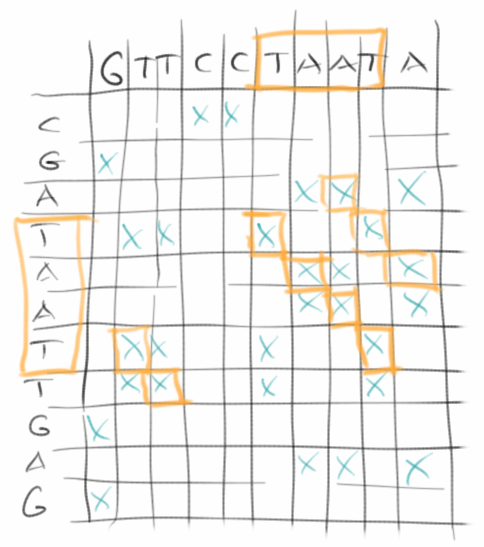 G T T C C T A A T A
C X X
G X
A X X X
T X X X X
A X X X
A X X X
T X X X X
T X X X X
G X
A X X X
G X